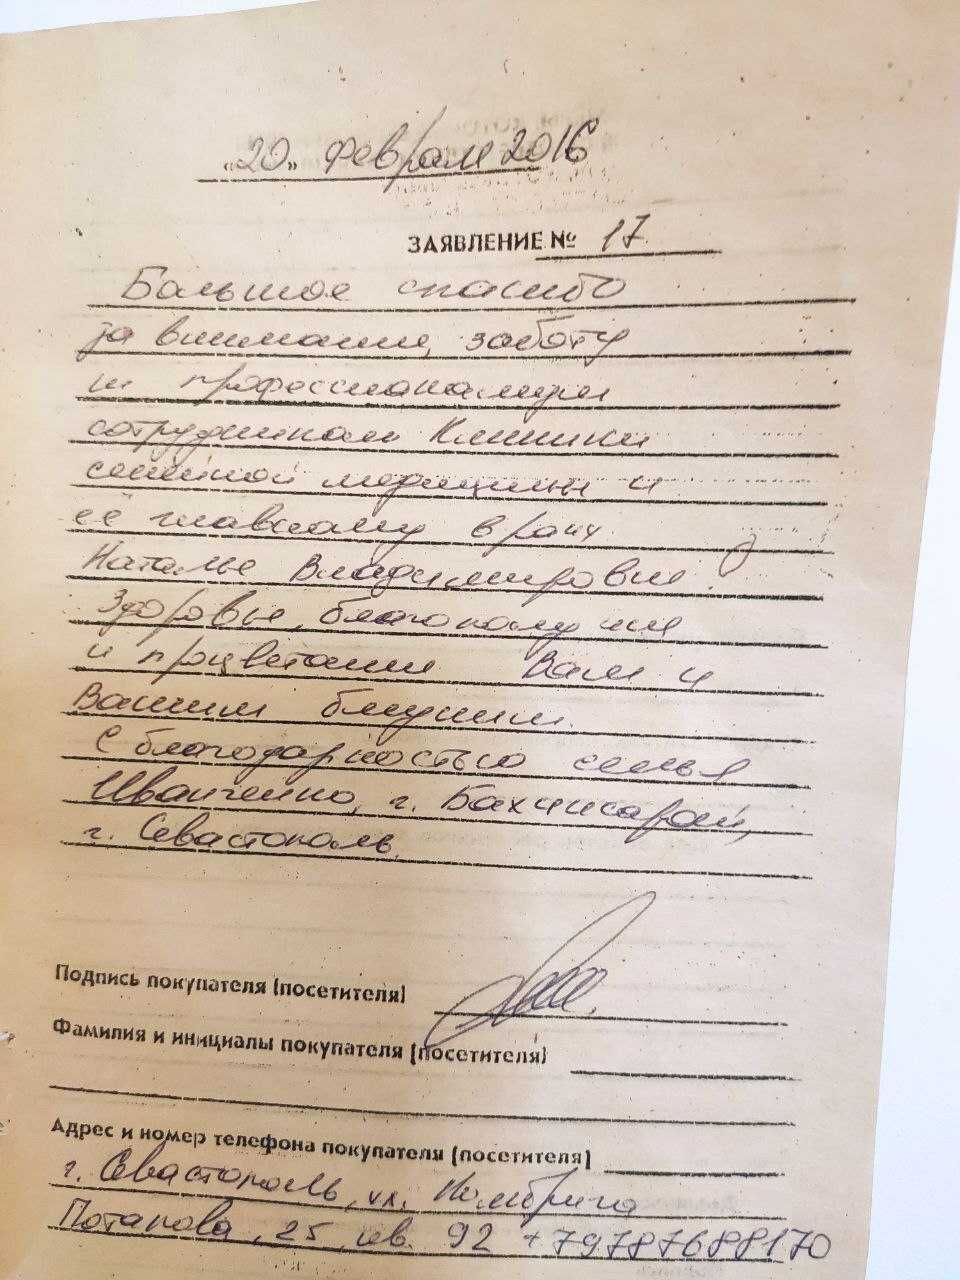 «20» февраля 2016
ЗАЯВЛЕНИЕ № 17
Большое спасибо
за внимание, заботу
и профессионализм
сотрудникам Клиники
семейной медицины и
её главному врачу
Наталье Владимировне.
Здоровья, благополучия
и процветания Вам и
Вашим близким.
С благодарностью семья
Иванченко, г. Бахчисарай,
г. Севастополь.
Подпись покупателя (посетителя)
Фамилия и инициалы покупателя (посетителя)
Адрес и номер телефона покупателя (посетителя)
г. Севастополь, ул. Комбрига
Потапова, 25 кв. 92 +79787688170